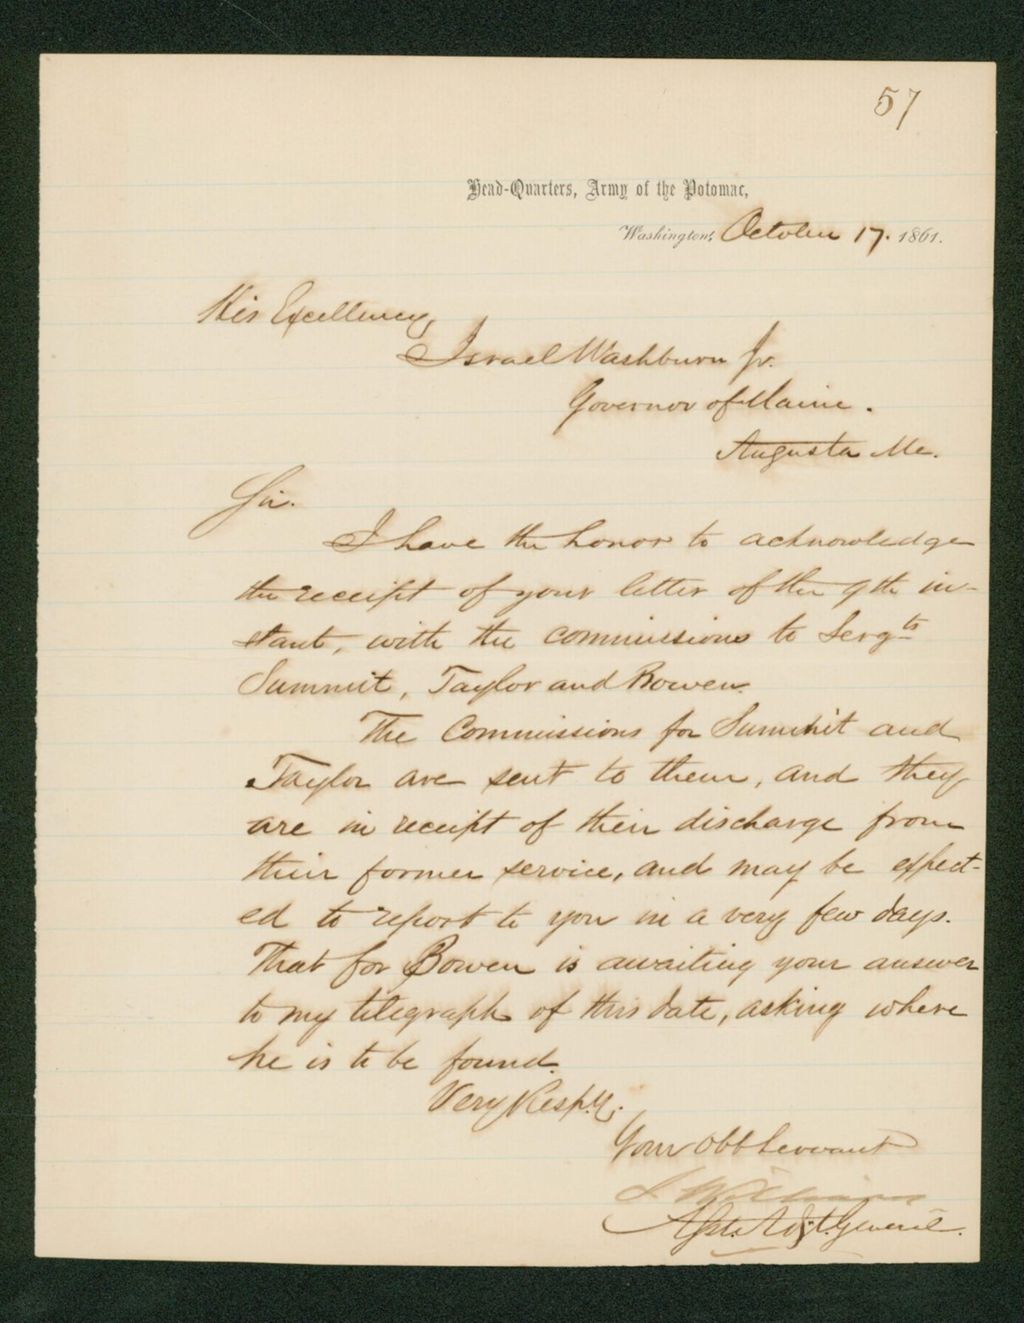 57
Head-Quarters, Army of the Potomac,
Washington, October 17. 1861.
His Excellency,
Israel Washburn Jr.
Governor of Maine.
Augusta Me.
Sir.
I have the honor to acknowledge
the receipt of your letter of the 9th in-
stant, with the commissions to Sergts
Summit, Taylor and Bowen.
The Commissions for Summit and
Taylor are sent to them, and they
are in receipt of their discharge from
their former service, and may be expect-
ed to report to you in a very few days.
That for Bowen is awaiting your answer
to my telegraph of this date, asking where
he is to be found.
Very Resply.
Your Obt Servant
S Williams
Asst. Adjt. General.